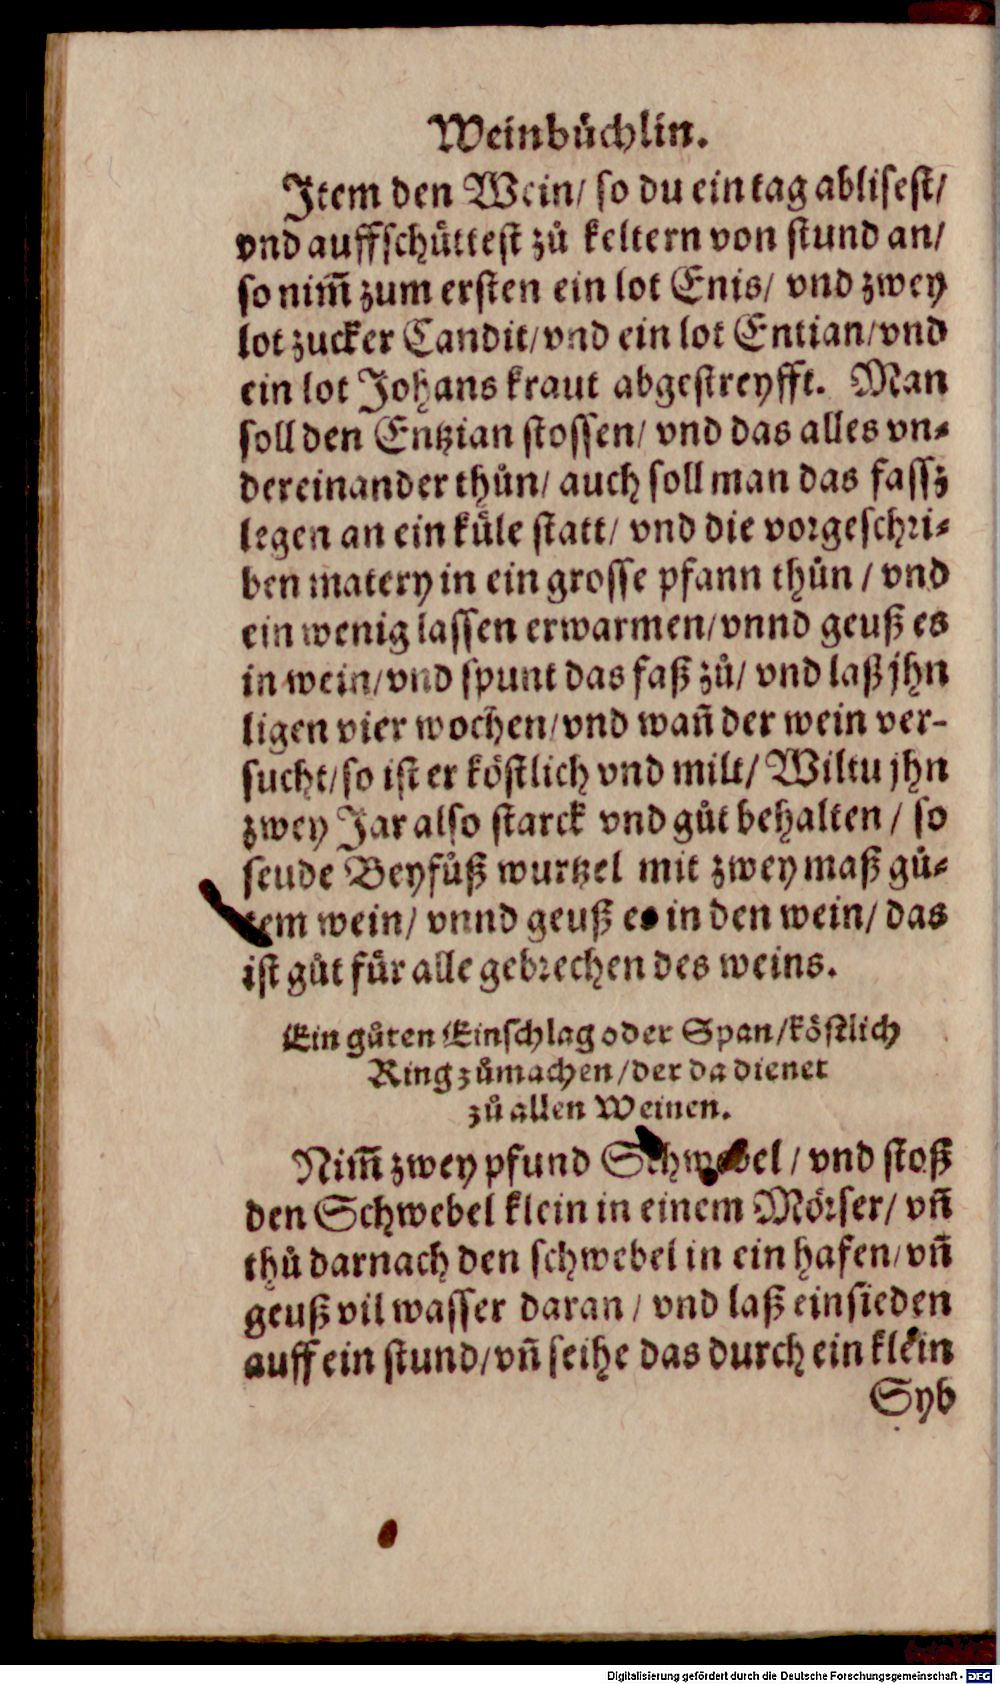 Weinbuͤchlin.
Item den Wein/ so du ein tag ablisest/
vnd auffschuͤttest zuͦ keltern von stund an/
so nim̄ zum ersten ein lot Enis/ vnd zwey
lot zucker Candit/vnd ein lot Entian/vnd
ein lot Johans kraut abgestreyfft. Man
soll den Entzian stossen/ vnd das alles vn⸗
dereinander thuͦn/ auch soll man das fassz
legen an ein kuͤle statt/ vnd die vorgeschri⸗
ben matery in ein grosse pfann thuͦn / vnd
ein wenig lassen erwarmen/vnnd geuß es
in wein/vnd spunt das faß zuͦ/ vnd laß jhn
ligen vier wochen/vnd wañ der wein ver-
sucht/so ist er koͤstlich vnd milt/ Wiltu jhn
zwey Jar also starck vnd guͦt behalten / so
seude Beyfuͦß wurtzel mit zwey maß guͦ⸗
tem wein/ vnnd geuß es in den wein/ das
ist guͦt fuͤr alle gebrechen des weins.
Ein guͦten Einschlag oder Span/koͤstlich
Ring zuͦmachen/der da dienet
zuͦ allen Weinen.
Nim̄ zwey pfund Schwebel / vnd stoß
den Schwebel klein in einem Moͤrser/ vñ
thuͦ darnach den schwebel in ein hafen/vñ
geuß vil wasser daran / vnd laß einsieden
auff ein stund/vñ seihe das durch ein klein
Syb
Digitalisierung gefördert durch die Deutsche Forschungsgemeinschaft - DFG